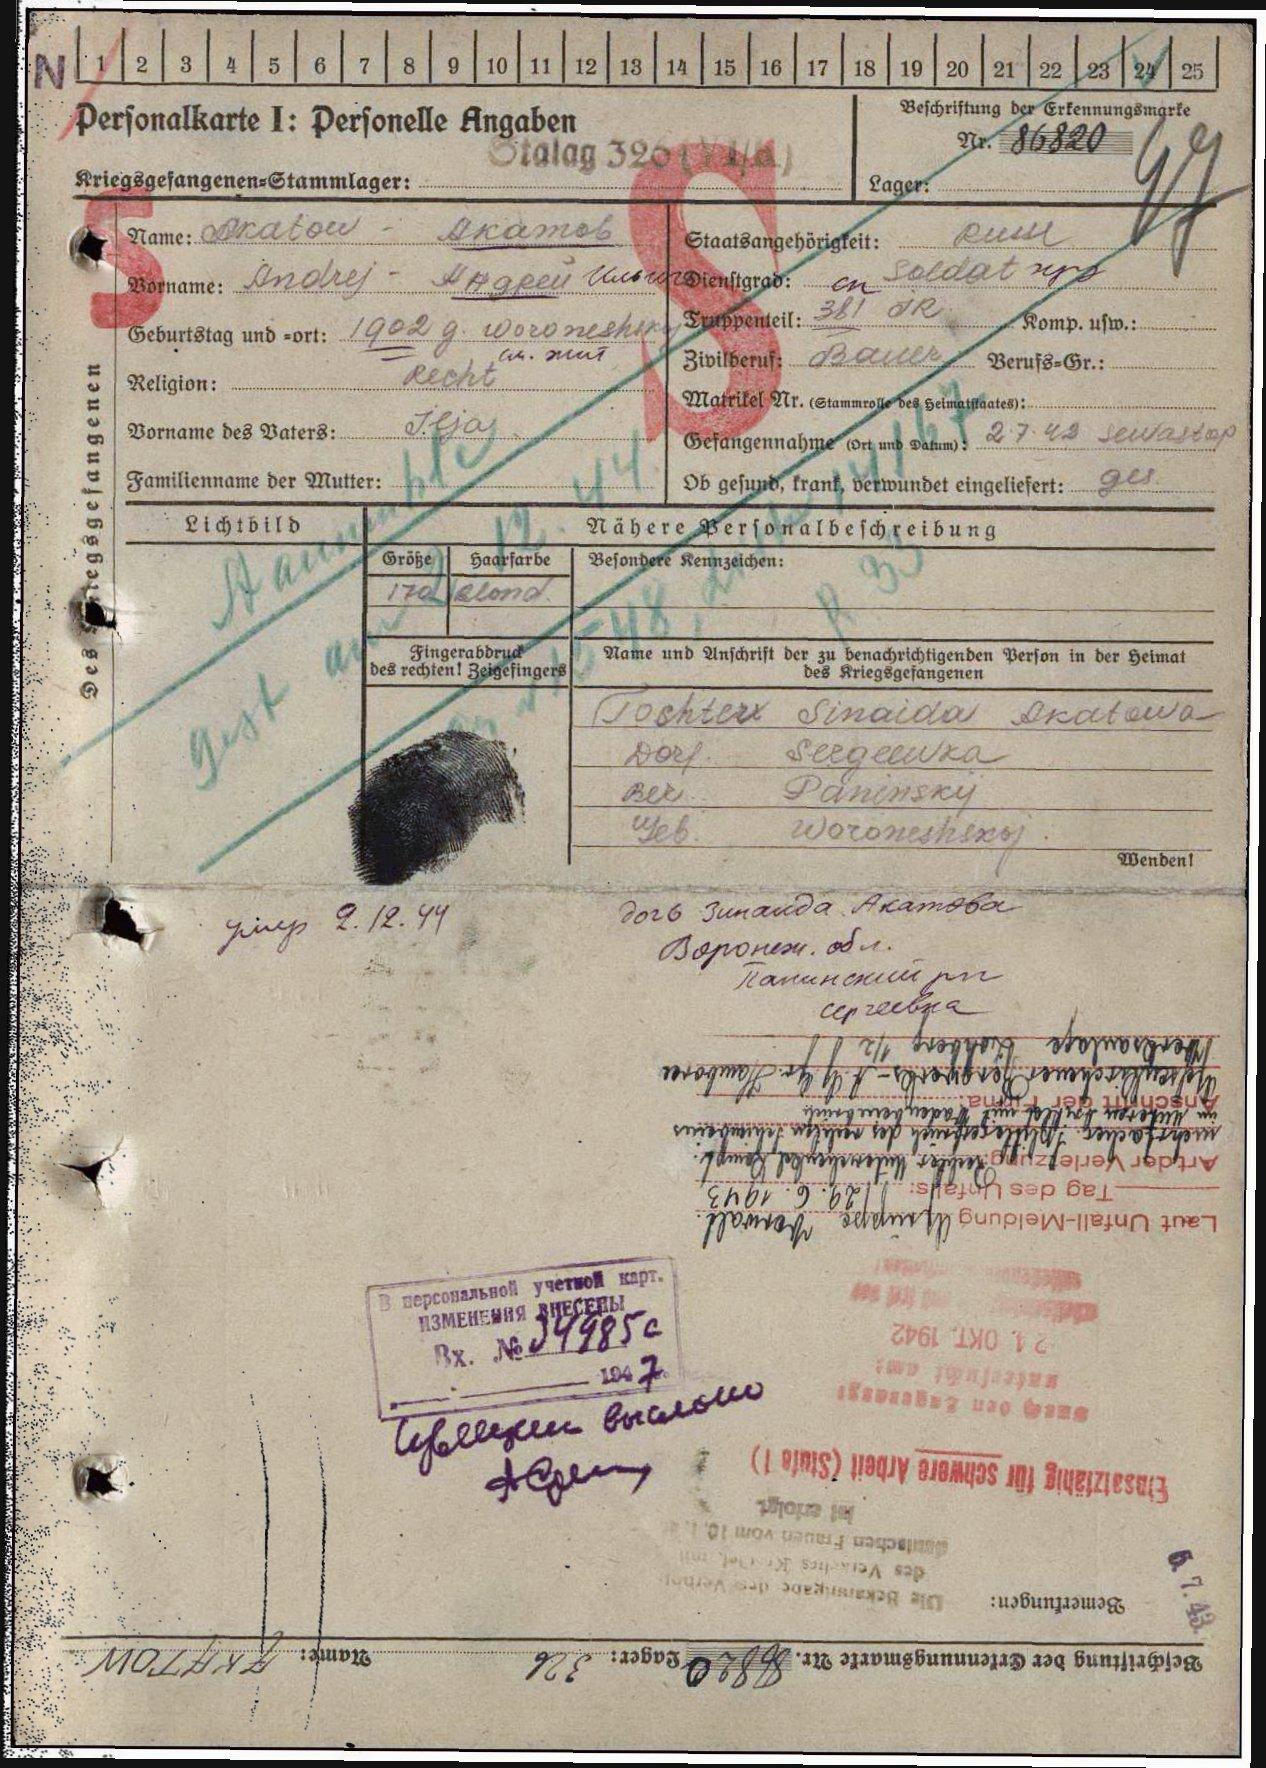 N 1 2 3 4 5 6 7 8 9 10 11 12 13 14 15 16 17 18 19 20 21 22 23 24 25
Personalkarte I: Personelle Angaben
Beschriftung der Erkennungsmarke
Nr. 86820
Stalag 326 (VI/K)
Kriegsgefangenen-Stammlager:
Lager:
S
S
Des Kriegsgefangenen
Name: Akatow - Акатов
Vorname: Andrej - Андрей Ильич
Geburtstag und -ort: 1902 g. Woroneshskoj
Religion: Recht
Vorname des Vaters: Ilja
Familienname der Mutter:
Staatsangehörigkeit: Russe
Dienstgrad: Soldat
Truppenteil: 381 IR Komp. usw.:
Zivilberuf: Bauer Berufs-Gr.:
Matrikel Nr. (Stammrolle des Heimatstaates):
Gefangennahme (Ort und Datum): 2.7.42 Sewastop
Ob gesund, krank, verwundet eingeliefert: ges.
Lichtbild
Nähere Personalbeschreibung
Größe Haarfarbe Besondere Kennzeichen:
170 blond.
Fingerabdruck
des rechten! Zeigefingers
Name und Anschrift der zu benachrichtigenden Person in der Heimat
des Kriegsgefangenen
Tochter Sinaida Akatowa
Dorf. Sergeewka
Bez. Paninskij
Geb. Woroneshskoj.
Wenden!
gest. am 2. 12. 44
умер 2.12.44
дочь Зинаида Акатова
Воронеж. обл.
Панинский рн
Сергеевка
В персональной учетной карт.
ИЗМЕНЕНИЯ ВНЕСЕНЫ
Вх. № 34985с
194 7
выслано
Beschriftung der Erkennungsmarke Nr. 86820 Lager: 326 Name: AKATOW
Bemerkungen:
6. 7. 43
Die Bekanntgabe des Verbot
des Verkehrs
Frauen vom 10.1.
ist erfolgt
Einsatzfähig für schwere Arbeit (Stufe 1)
Durch den Lagerarzt
untersucht am:
21. OKT. 1942
Laut Unfall-Meldung Gruppe Verwalt.
Tag des Unfalls: 29. 6. 1943
Art der Verletzung: rechter Unterschenkel
mehrfacher Splitterbruch des rechten Schienbeins
im unteren Drittel und Wadenbeinbruch
Anschrift der Firma:
Gelsenkirchener Bergwerks-A.G. Gr. Hamborn
Werksanlage Lohberg 1/2